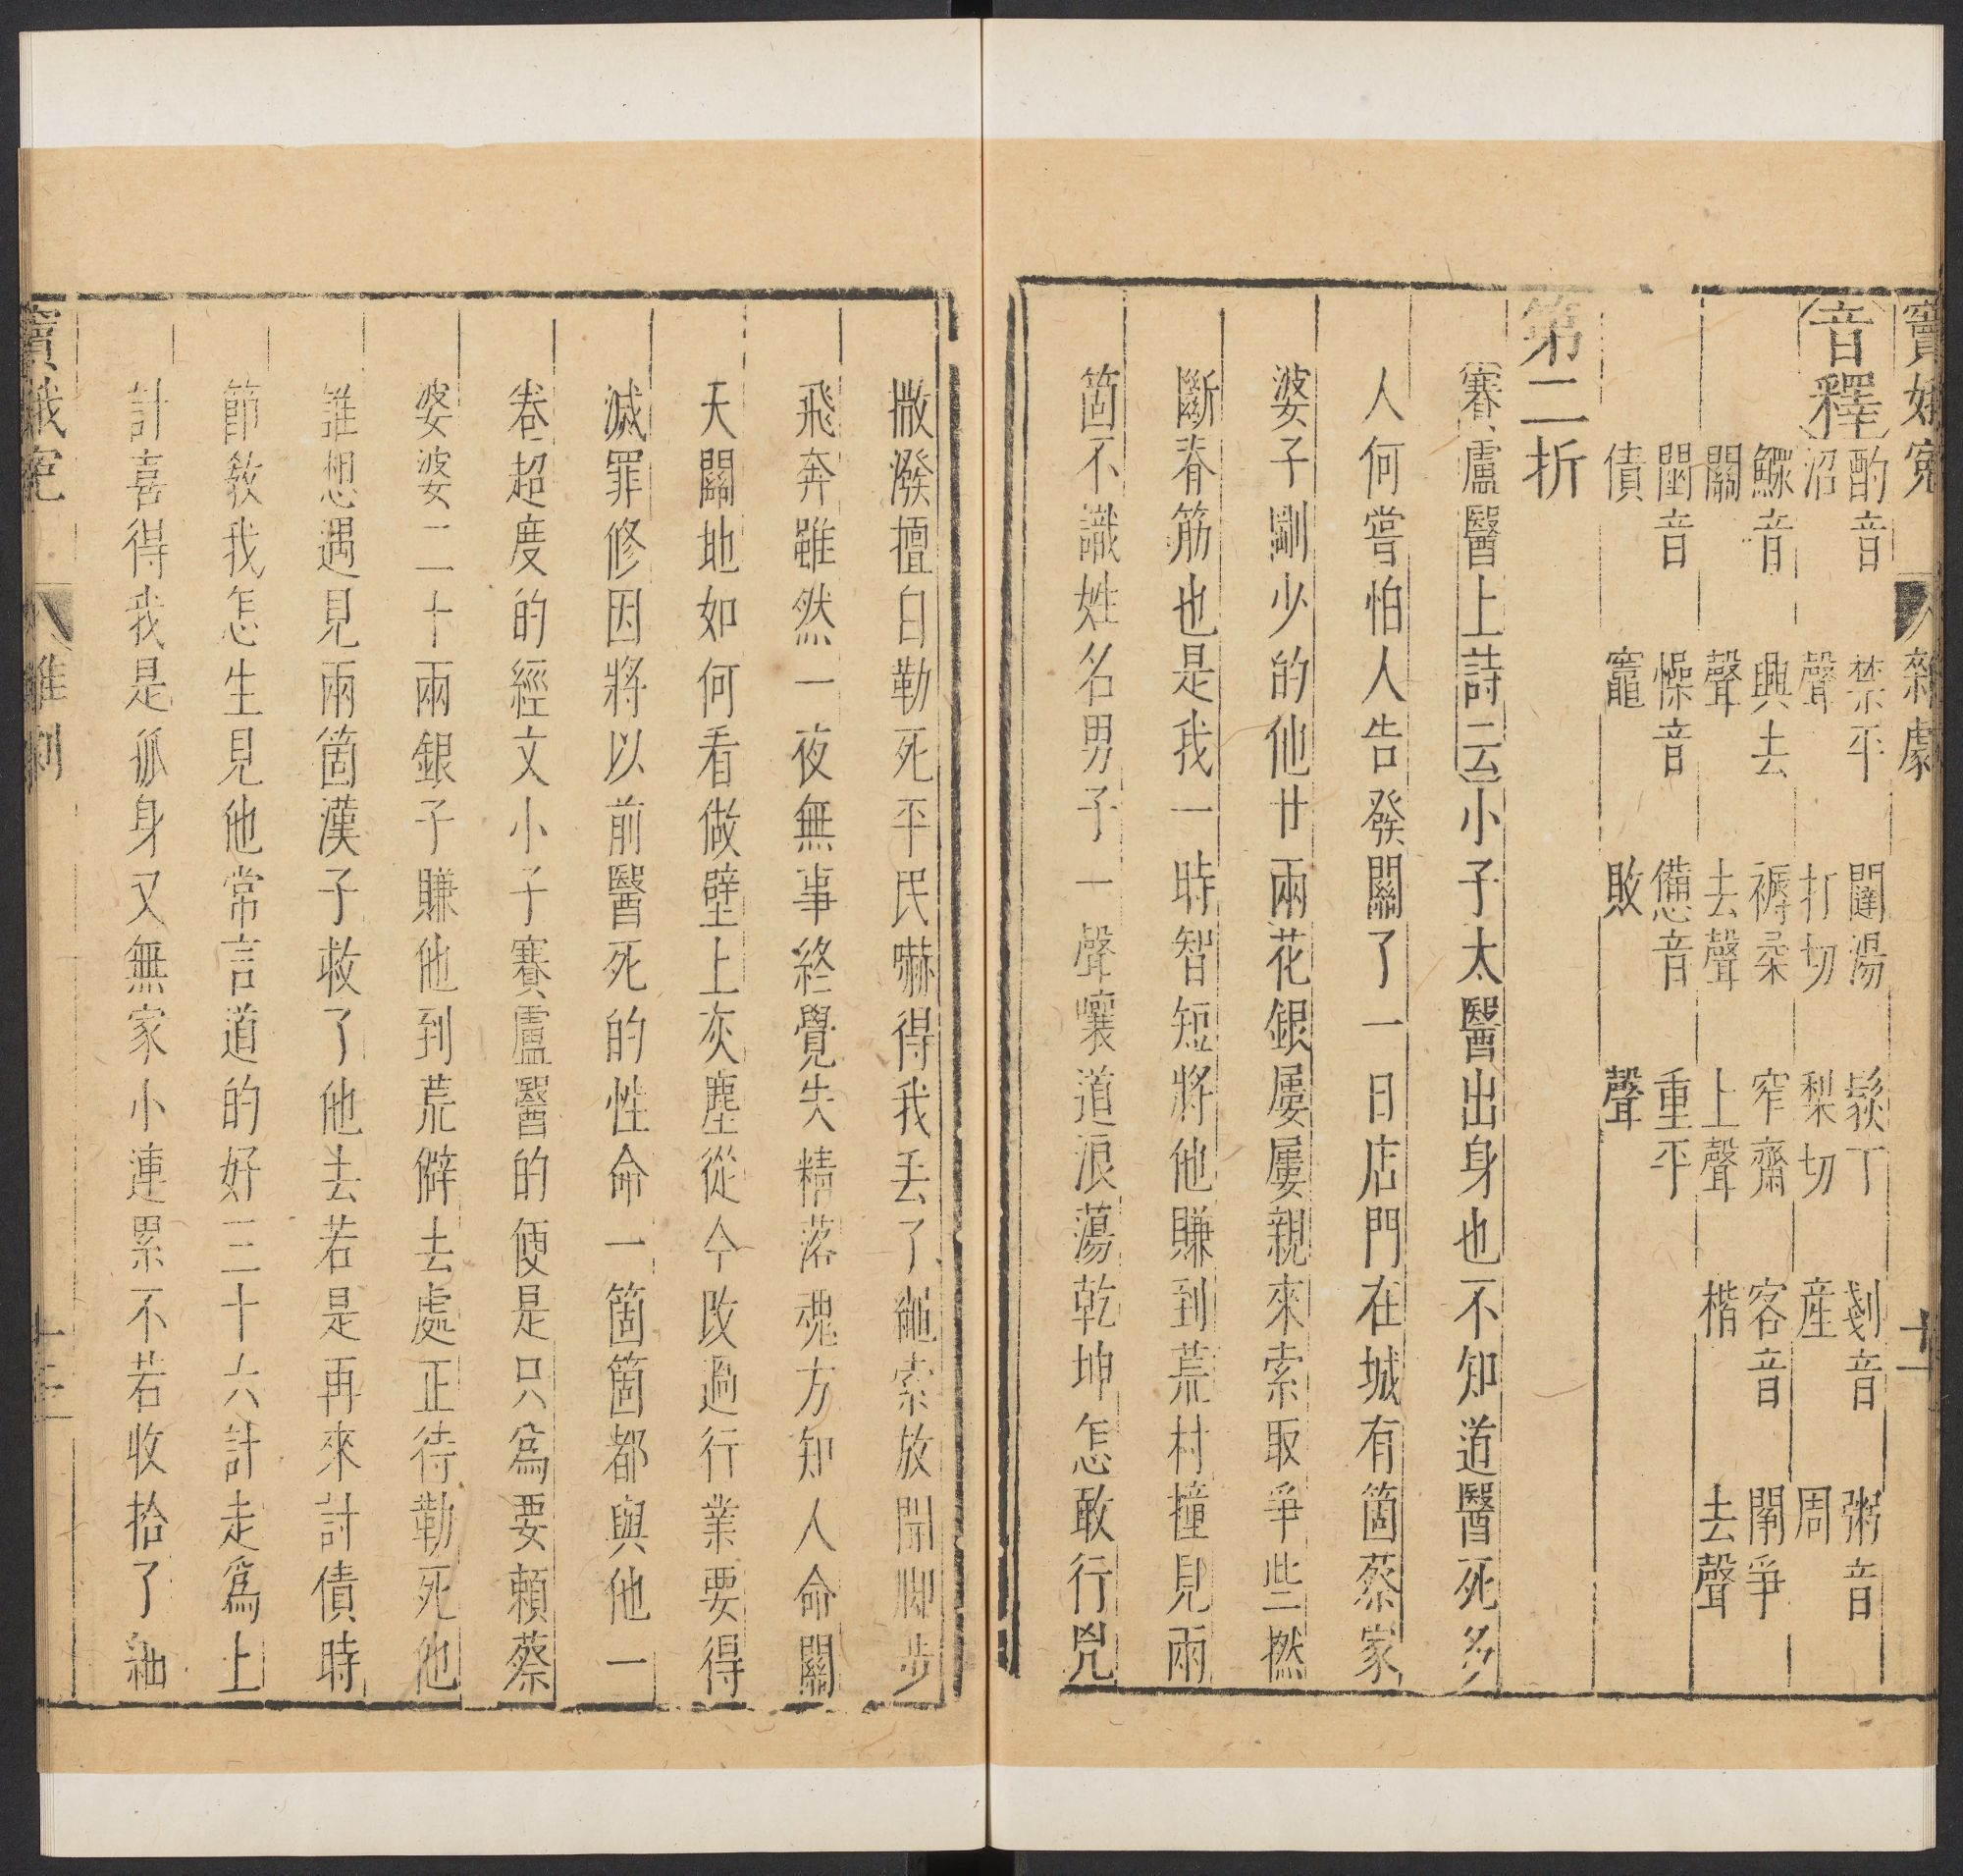 竇娥冤 雜劇 十二
音釋
酌音 禁平 闥湯 鬏丁 剗音 粥音
沼 聲 打切 梨切 產 周
鰥音 興去 褥柔 窄齋 客音 鬧爭
關 聲 去聲 上聲 楷 去聲
音 懆音 憊音 重平
債 竈 敗 聲
第二折
賽盧醫上詩云小子太醫出身也不知道醫死多
人何嘗怕人告發關了一日店門在城有箇蔡家
婆子剛少的他廿兩花銀屢屢親來索取爭些撚
斷脊筋也是我一時智短將他賺到荒村撞見兩
箇不識姓名男子一聲嚷道浪蕩乾坤怎敢行兇
撒潑擅自勒死平民嚇得我丟了繩索放開腳步
飛奔雖然一夜無事終覺失精落魂方知人命關
天關地如何看做壁上灰塵從今改過行業要得
滅罪修因將以前醫死的性命一箇箇都與他一
卷超度的經文小子賽盧醫的便是只為要賴蔡
婆婆二十兩銀子賺他到荒僻去處正待勒死他
誰想遇見兩箇漢子救了他去若是再來討債時
節敎我怎生見他常言道的好三十六計走為上
計喜得我是孤身又無家小連累不若收拾了細
竇娥冤 雜劇 十三